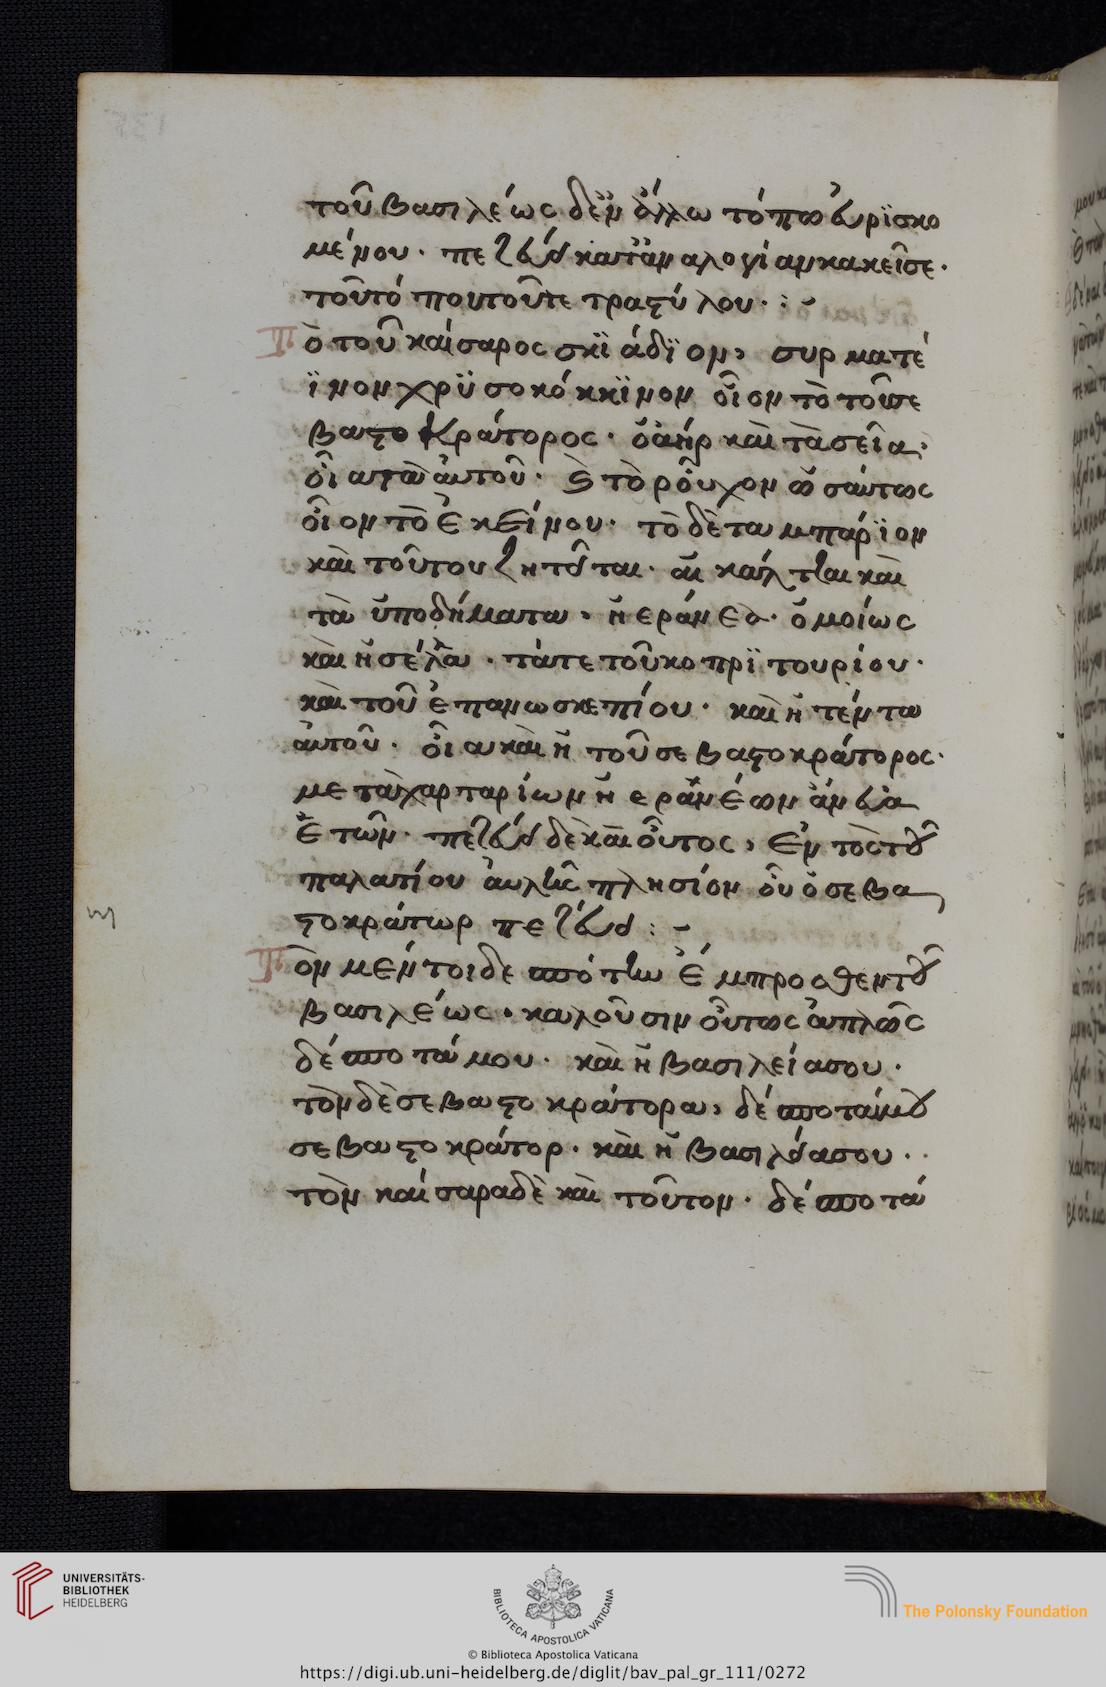 τοῦ βασιλέως δὲ ἐν ἄλλω τόπω εὑρϊσκο
μένου. πεζεύει κατὰ ἀναλογίαν κακεῖσε.
τοῦτό που τοῦτε τραςύλου. :~
Τὸ τοῦ καίσαρος σκϊάδϊον, συρματέ
ϊνον χρϋσοκόκκϊνον οἷον τὸ τοῦ σε
βαςοκράτορος. ὁ ἀὴρ καὶ τὰ σεῖα.
οἷα τὰ αὐτοῦ. καὶ τὸ ροῦχον ὡσαύτως
οἷον τὸ ἐκείνου. τὸ δὲ ταμπάρϊον
καὶ τούτου ζητεῖται. αἱ κάλτζαι καὶ
τὰ ὑποδήματα, ἠεράνεα. ὁμοίως
καὶ ἡ σέλλα. τά τε τοῦ κοπρϊτουρίου.
καὶ τοῦ ἐπανωσκεπίου. καὶ ἡ τέντα
αὐτοῦ. οἵα καὶ ἡ τοῦ σεβαςοκράτορος.
μετὰ χαρταρίων ἠερανέων ἄνευ ἀ
ετῶν. πεζεύει δὲ καὶ οὗτος, ἐντὸς τοῦ
παλατίου αὐλῆς πλησίον οὗ ὁ σεβα
ςοκράτωρ πεζεύει :~
Τὸν μέντοι δεσπότην ἔμπροσθεν τοῦ
βασιλέως. καλοῦσιν οὕτως ἁπλῶς
δέσποτά μου. καὶ ἡ βασιλεία σου.
τὸν δὲ σεβαςοκράτορα, δέσποτά μου
σεβαςοκράτορ. καὶ ἡ βασιλεία σου..
τὸν καίσαρα δὲ καὶ τοῦτον. δέσποτά
UNIVERSITÄTS-
BIBLIOTHEK
HEIDELBERG
BIBLIOTECA APOSTOLICA VATICANA
The Polonsky Foundation
© Biblioteca Apostolica Vaticana
https://digi.ub.uni-heidelberg.de/diglit/bav_pal_gr_111/0272